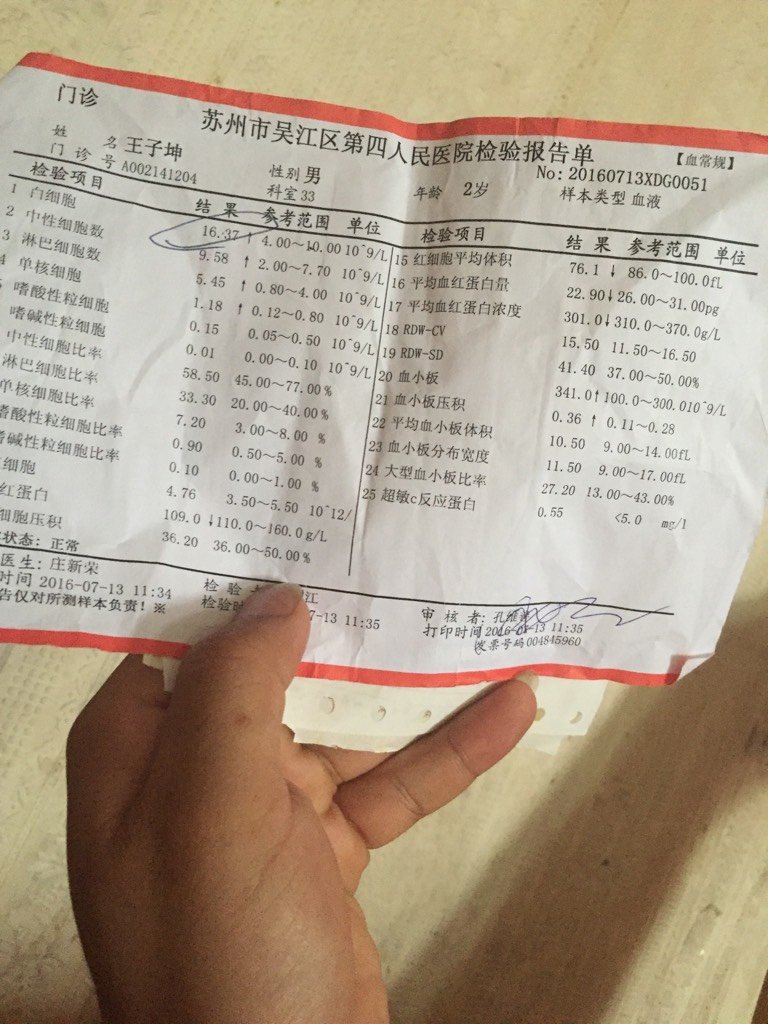 门诊
苏州市吴江区第四人民医院检验报告单
【血常规】
姓 名 王子坤
性别 男
年龄 2岁
No: 20160713XDG0051
门 诊 号 A002141204
科室 33
样本类型 血液
检验项目 结 果 参考范围 单位
1 白细胞 16.37 ↑ 4.00~10.00 10^9/L
2 中性细胞数 9.58 ↑ 2.00~7.70 10^9/L
3 淋巴细胞数 5.45 ↑ 0.80~4.00 10^9/L
4 单核细胞 1.18 ↑ 0.12~0.80 10^9/L
嗜酸性粒细胞 0.15 0.05~0.50 10^9/L
嗜碱性粒细胞 0.01 0.00~0.10 10^9/L
中性细胞比率 58.50 45.00~77.00 %
淋巴细胞比率 33.30 20.00~40.00 %
单核细胞比率 7.20 3.00~8.00 %
嗜酸性粒细胞比率 0.90 0.50~5.00 %
嗜碱性粒细胞比率 0.10 0.00~1.00 %
细胞 4.76 3.50~5.50 10^12/
红蛋白 109.0 ↓ 110.0~160.0 g/L
细胞压积 36.20 36.00~50.00 %
检验项目 结 果 参考范围 单位
15 红细胞平均体积 76.1 ↓ 86.0~100.0fL
16 平均血红蛋白量 22.90 ↓ 26.00~31.00pg
17 平均血红蛋白浓度 301.0 ↓ 310.0~370.0g/L
18 RDW-CV 15.50 11.50~16.50
19 RDW-SD 41.40 37.00~50.00%
20 血小板 341.0 ↑ 100.0~300.010^9/L
21 血小板压积 0.36 ↑ 0.11~0.28
22 平均血小板体积 10.50 9.00~14.00fL
23 血小板分布宽度 11.50 9.00~17.00fL
24 大型血小板比率 27.20 13.00~43.00%
25 超敏c反应蛋白 0.55 <5.0 mg/l
状态: 正常
医生: 庄新荣
检 验 江
审 核 者: 孔维
时间 2016-07-13 11:34
检验时 7-13 11:35
打印时间 2016-07-13 11:35
告仅对所测样本负责!※
发票号码 004845960